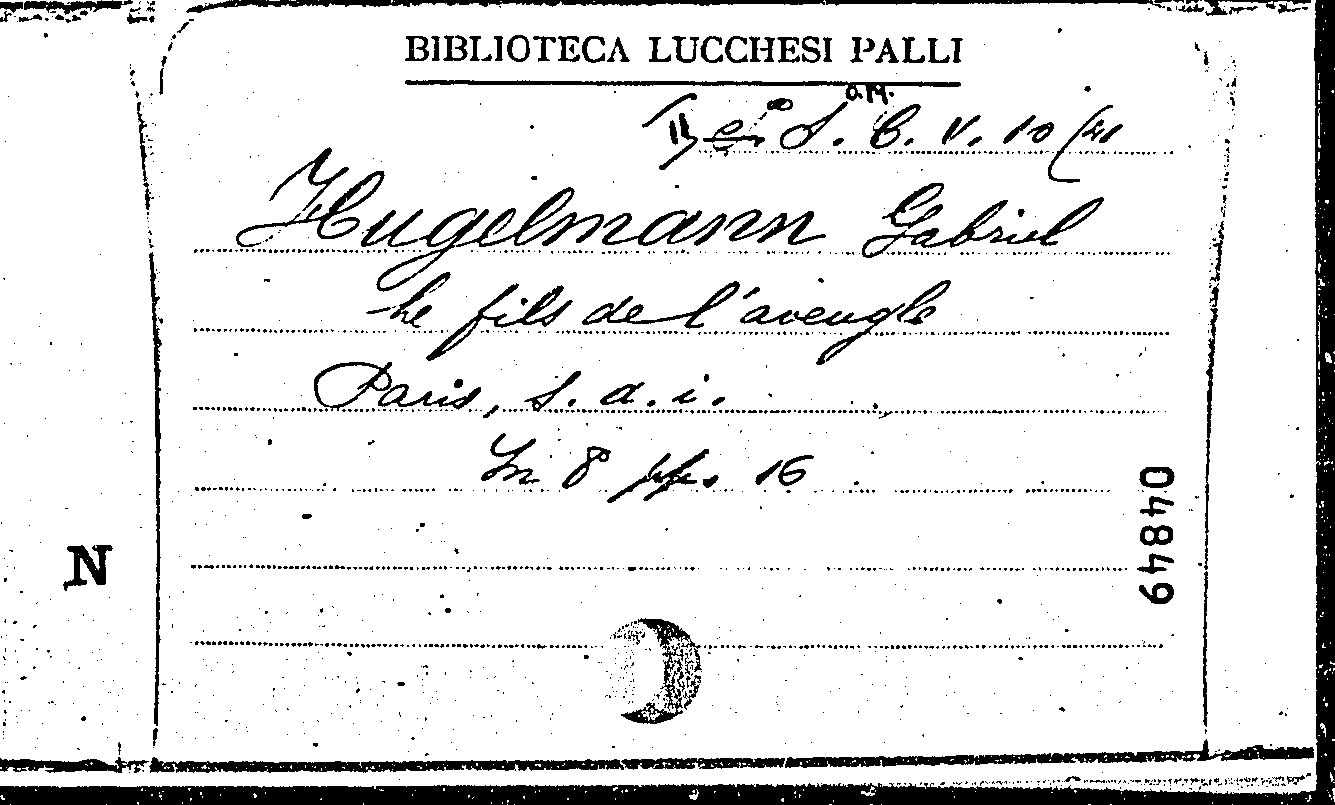 BIBLIOTECA LUCCHESI PALLI
S. C. V. 10 (41
Hugelmann Gabriel
Le fils de l'aveugle
Paris, s. a. i.
In 8° pp. 16
04849
N